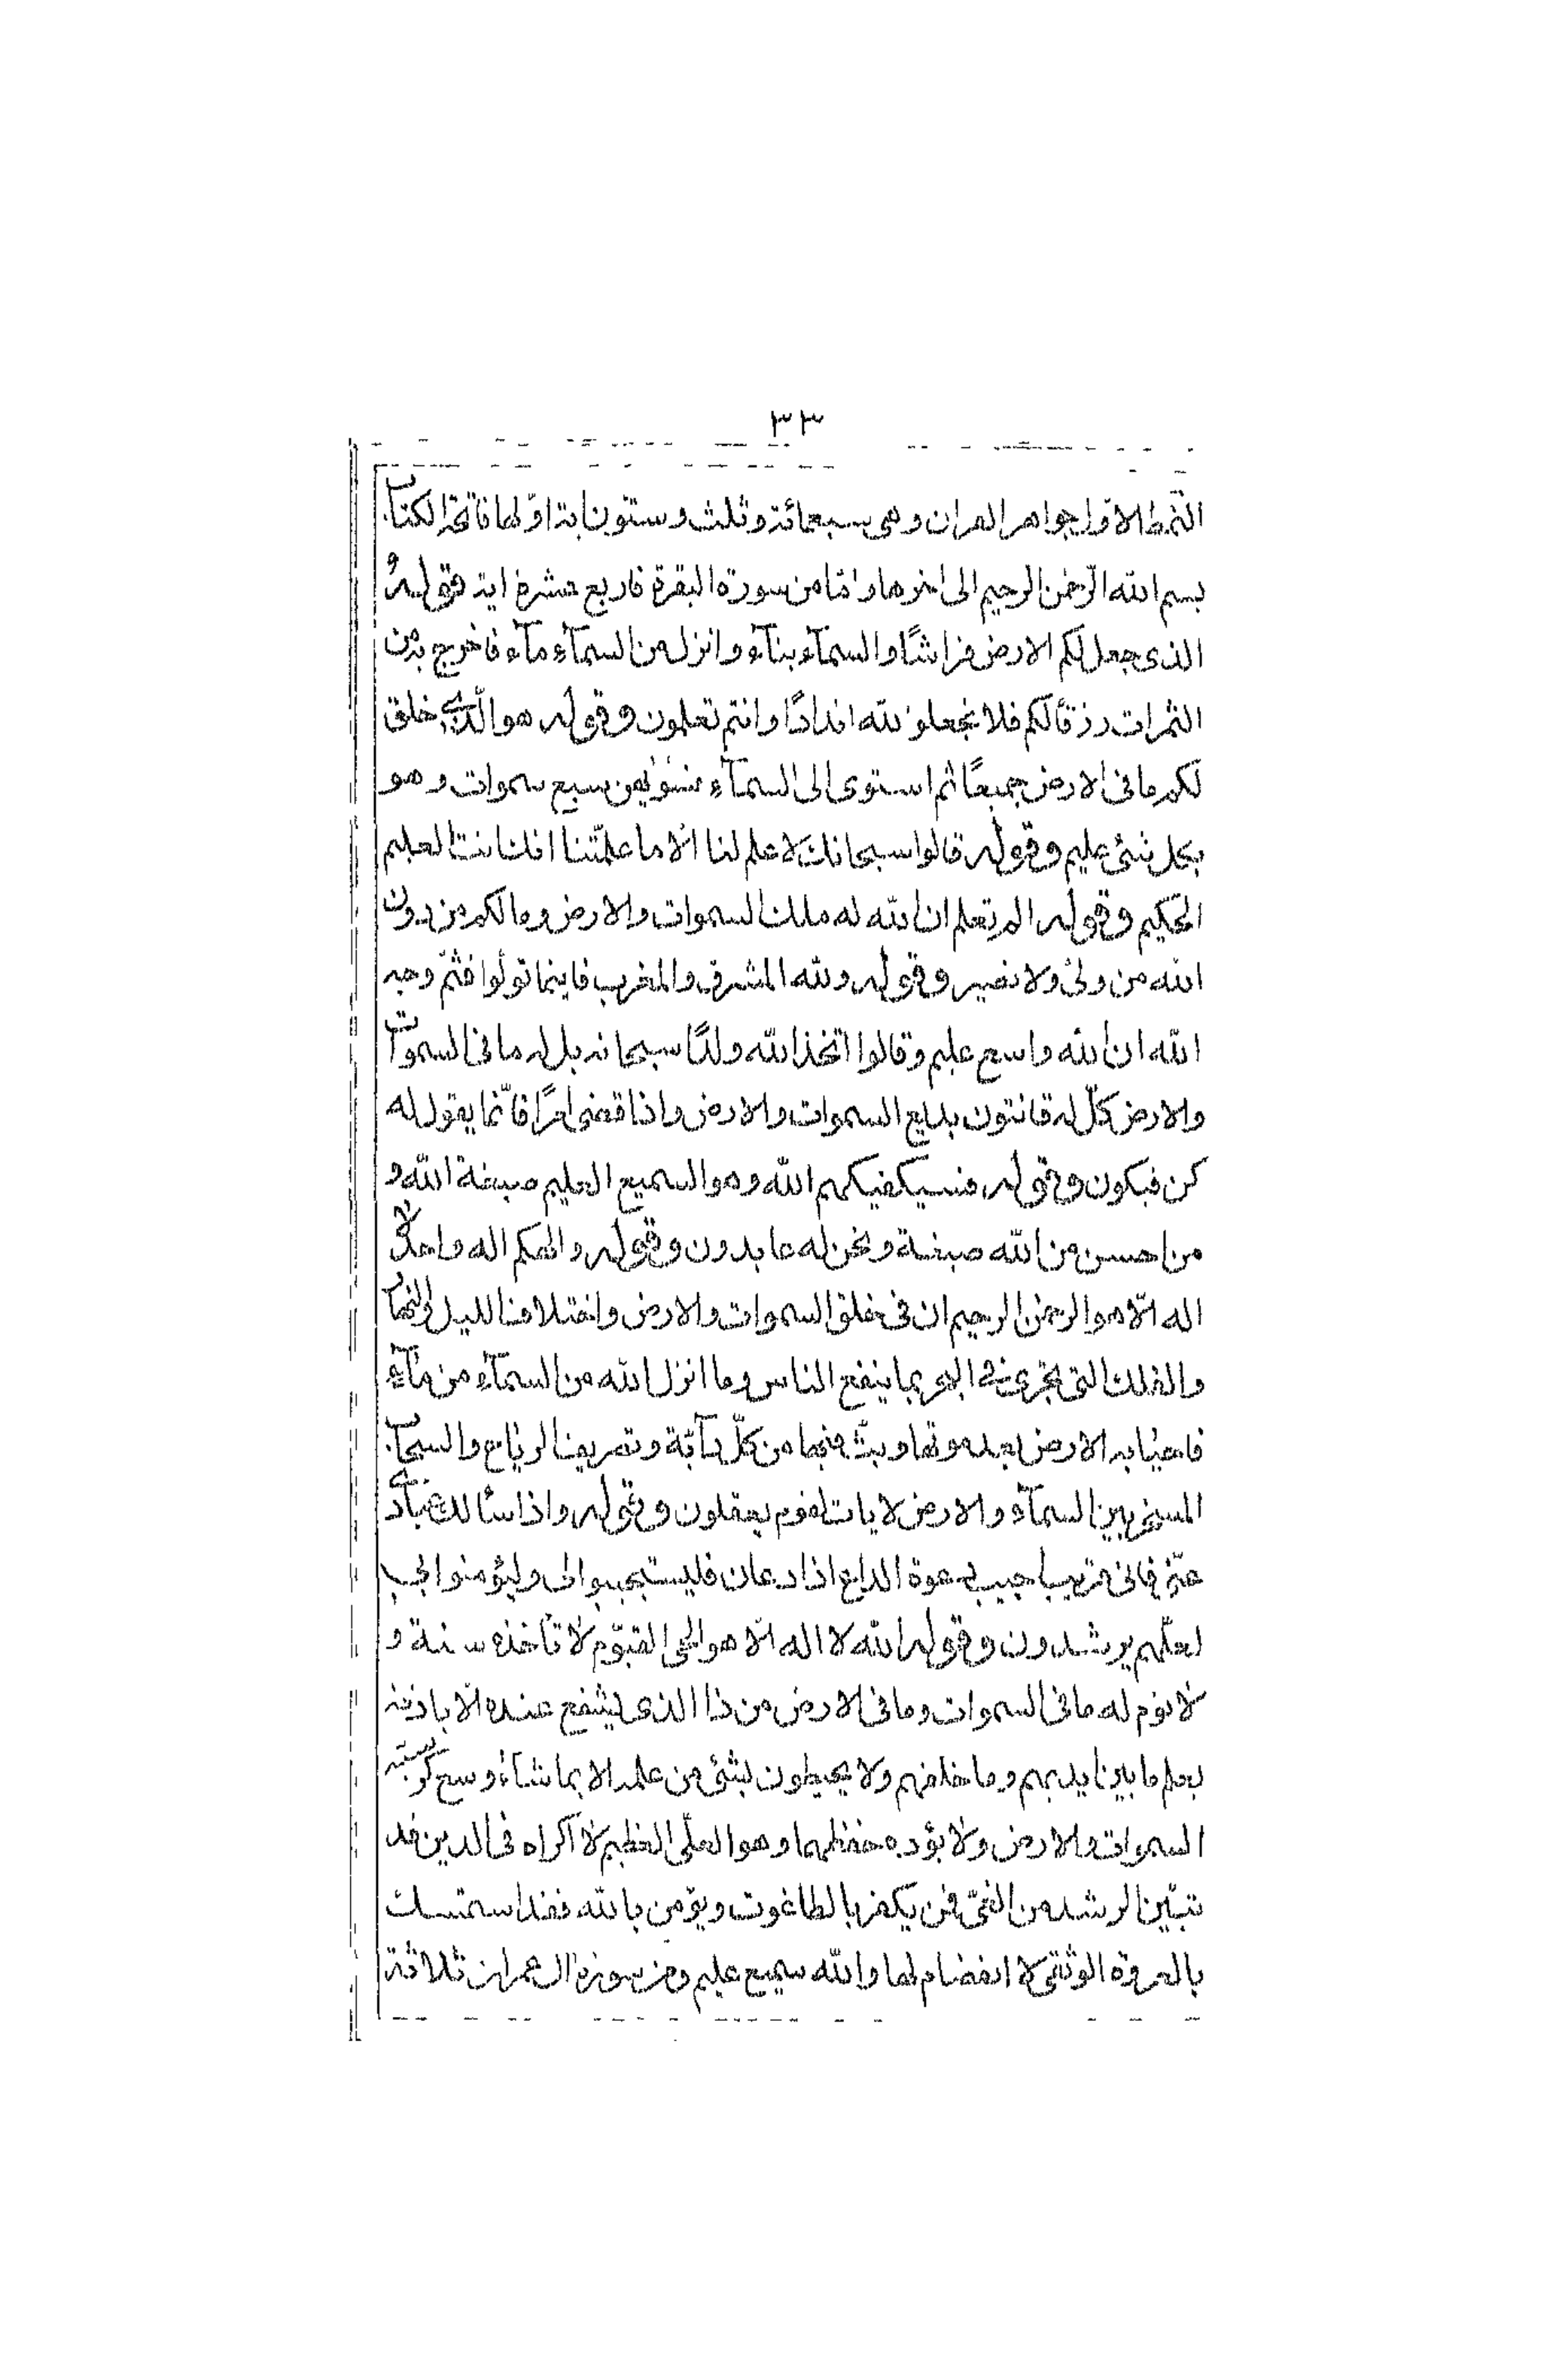 ٣٣
النمط الاول جواهر القران وهى سبعمائة وثلث وستون اية اولها فاتحة الكتاب
بسم الله الرحمن الرحيم الى اخرها وامّا من سورة البقرة فاربع عشرة اية قوله
الذى جعل لكم الارض فراشًا والسمآء بنآء وانزل من السمآء مآء فاخرج به من
الثمرات رزقًا لكم فلا تجعلوا لله اندادًا وانتم تعلمون وقوله هو الّذى خلق
لكم ما فى الارض جميعًا ثم استوى الى السمآء فسوّٰيهن سبع سموات وهو
بكل شئ عليم وقوله قالوا سبحانك لا علم لنا الّا ما علّمتنا انك انت العليم
الحكيم وقوله الم تعلم ان الله له ملك السموات والارض وما لكم من دون
الله من ولىّ ولا نصير وقوله ولله المشرق والمغرب فاينما تولّوا فثمّ وجه
الله ان الله واسع عليم وقالوا اتخذ الله ولدًا سبحانه بل له ما فى السموات
والارض كلّ له قانتون بديع السموات والارض واذا قضى امرًا فانّما يقول له
كن فيكون وقوله فسيكفيكهم الله وهو السميع العليم صبغة الله و
من احسن من الله صبغة ونحن له عابدون وقوله والهكم اله واحد لا
اله الّا هو الرحمن الرحيم ان فى خلق السموات والارض واختلاف الليل والنهار
والفلك التى تجرى فى البحر بما ينفع الناس وما انزل الله من السمآء من مآء
فاحيا به الارض بعد موتها وبثّ فيها من كلّ دآبّة وتصريف الرياح والسحاب
المسخر بين السمآء والارض لايات لقوم يعقلون وقوله واذا سألك عبادى
عنّى فانى قريب اجيب دعوة الداع اذا دعان فليستجيبوا لى وليؤمنوا بى
لعلّهم يرشدون وقوله الله لا اله الّا هو الحى القيّوم لا تأخذه سنة و
لا نوم له ما فى السموات وما فى الارض من ذا الذى يشفع عنده الّا باذنه
يعلم ما بين ايديهم وما خلفهم ولا يحيطون بشئ من علمه الا بما شآء وسع كرسيّه
السموات والارض ولا يؤده حفظهما وهو العلّى العظيم لا اكراه فى الدين قد
تبيّن الرشد من الغىّ فمن يكفر بالطاغوت ويؤمن بالله فقد استمسك
بالعروة الوثقى لا انفصام لها والله سميع عليم ومن سورة ال عمران ثلاثة